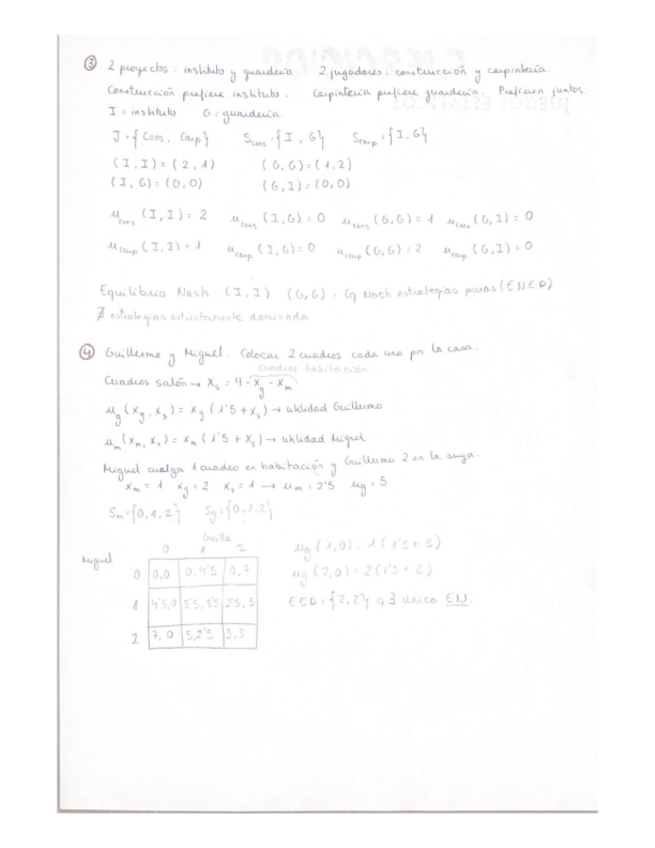 ③ 2 proyectos: instituto y guardería. 2 jugadores: construcción y carpintería.
Construcción prefiere instituto. Carpintería prefiere guardería. Prefieren juntos.
I = instituto G = guardería.
J = {Cons, Carp} S_cons = {I, G} S_carp = {I, G}
(I, I) = (2, 1) (G, G) = (1, 2)
(I, G) = (0, 0) (G, I) = (0, 0)
u_cons (I, I) = 2 u_cons (I, G) = 0 u_cons (G, G) = 1 u_cons (G, I) = 0
u_carp (I, I) = 1 u_carp (I, G) = 0 u_carp (G, G) = 2 u_carp (G, I) = 0
Equilibrio Nash: (I, I) (G, G) = Eq Nash estrategias puras (ENEP)
∄ estrategias estrictamente dominada
④ Guillermo y Miguel. Colocar 2 cuadros cada uno por la casa.
cuadros habitación
Cuadros salón → x_s = 4 - x_g - x_m
u_g (x_g, x_s) = x_g (1'5 + x_s) → utilidad Guillermo
u_m (x_m, x_s) = x_m (1'5 + x_s) → utilidad Miguel
Miguel cuelga 1 cuadro en habitación y Guillermo 2 en la suya.
x_m = 1 x_g = 2 x_s = 1 → u_m = 2'5 u_g = 5
S_m = {0, 1, 2} S_g = {0, 1, 2}
Guille
Miguel 0 1 2
0 0,0 0,4'5 0,7
1 4'5,0 3'5,3'5 2'5,5
2 7,0 5,2'5 3,3
u_g (1, 0) = 1 (1'5 + 3)
u_g (2, 0) = 2 (1'5 + 2)
EED = {2, 2} único EN.